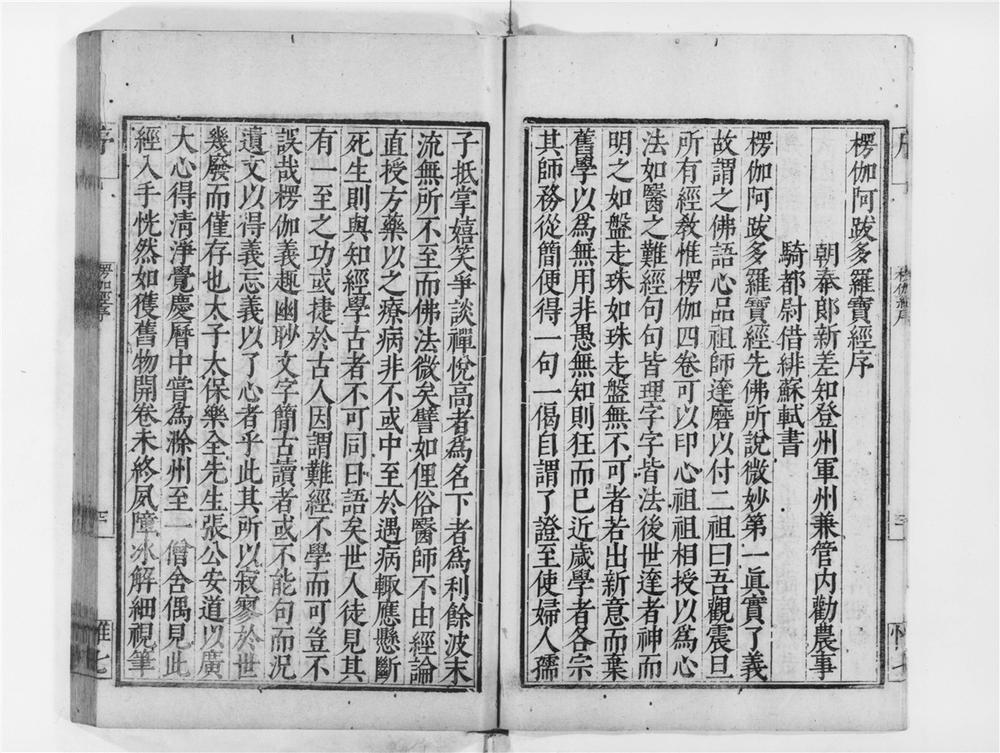 楞伽阿跋多羅寶經序
朝奉郎新差知登州軍州兼管內勸農事
騎都尉借緋蘇軾書
楞伽阿跋多羅寶經先佛所說微妙第一眞實了義
故謂之佛語心品祖師達磨以付二祖曰吾觀震旦
所有經教惟楞伽四卷可以印心祖祖相授以爲心
法如醫之難經句句皆理字字皆法後世達者神而
明之如盤走珠如珠走盤無不可者若出新意而棄
舊學以爲無用非愚無知則狂而已近歲學者各宗
其師務從簡便得一句一偈自謂了證至使婦人孺
子抵掌嬉笑爭談禪悅高者爲名下者爲利餘波末
流無所不至而佛法微矣譬如俚俗醫師不由經論
直授方藥以之療病非不或中至於遇病輒應懸斷
死生則與知經學古者不可同日語矣世人徒見其
有一至之功或捷於古人因謂難經不學而可豈不
誤哉楞伽義趣幽眇文字簡古讀者或不能句而況
遺文以得義忘義以了心者乎此其所以寂寥於世
幾廢而僅存也太子太保樂全先生張公安道以廣
大心得清淨覺慶曆中嘗爲滁州至一僧舍偶見此
經入手恍然如獲舊物開卷未終夙障冰解細視筆
序
楞伽經序